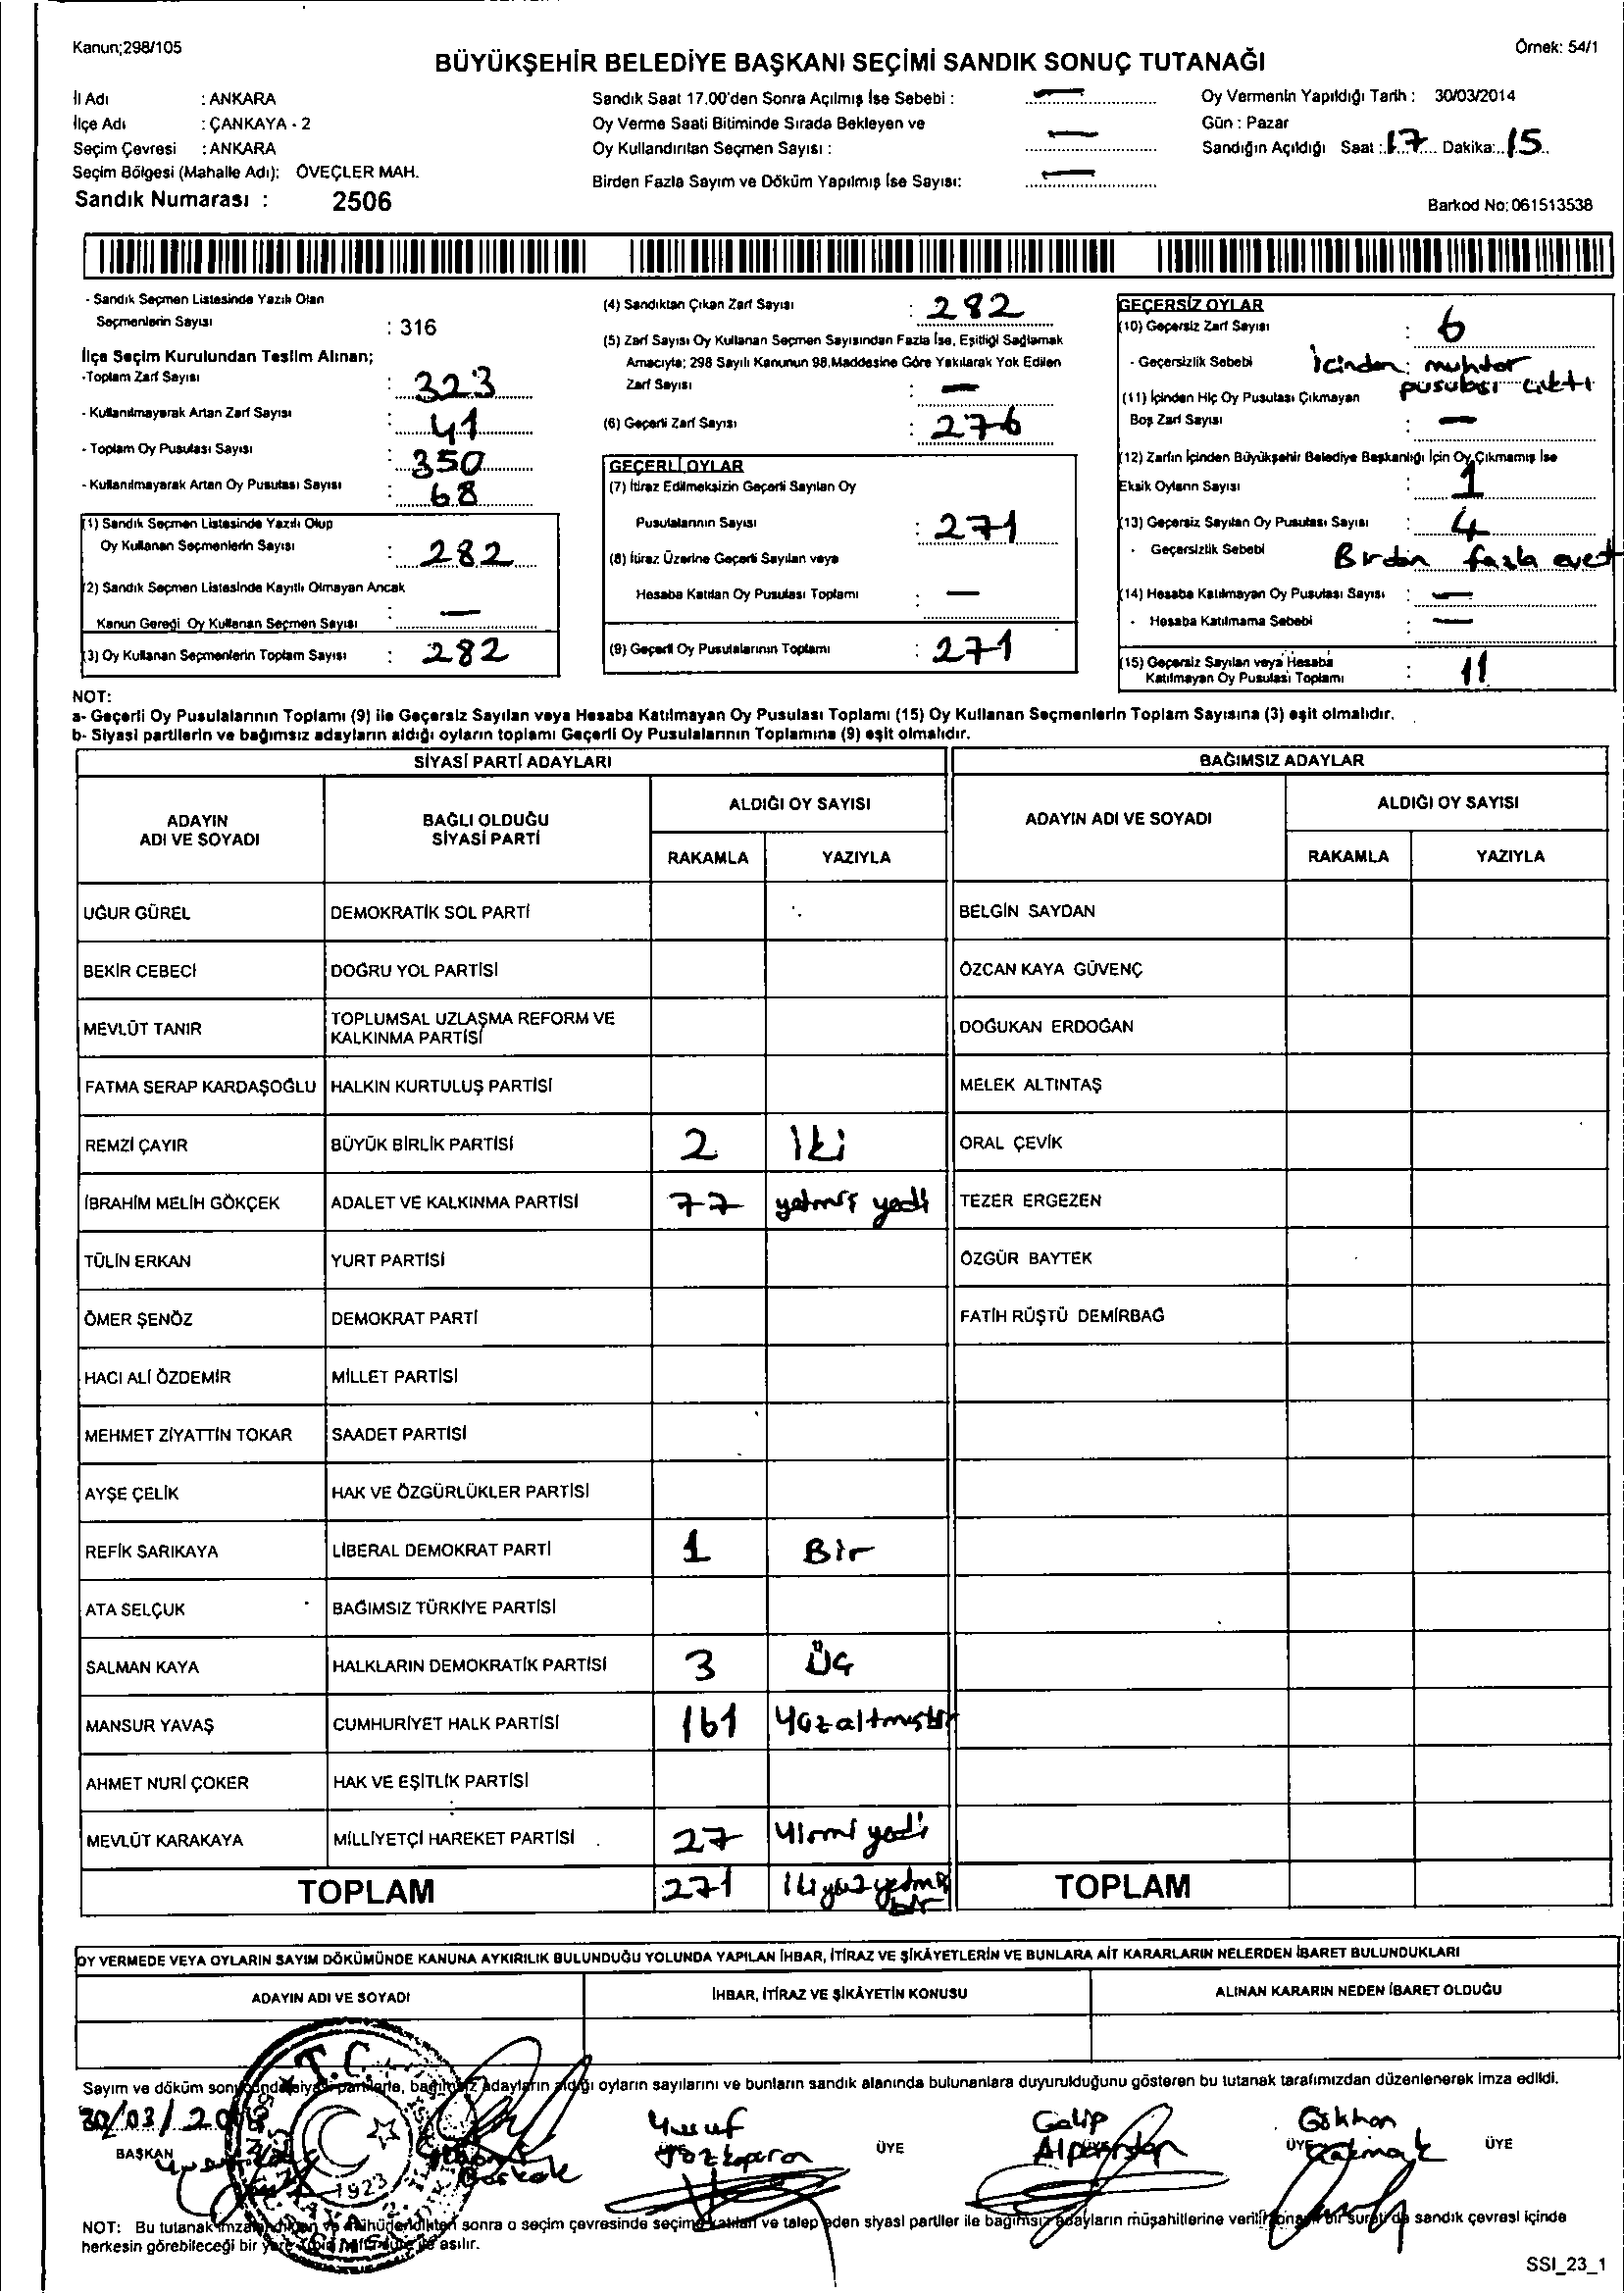 Kanun;298/105
Örnek: 54/1
BÜYÜKŞEHİR BELEDİYE BAŞKANI SEÇİMİ SANDIK SONUÇ TUTANAĞI
İl Adı : ANKARA
İlçe Adı : ÇANKAYA - 2
Seçim Çevresi : ANKARA
Seçim Bölgesi (Mahalle Adı): ÖVEÇLER MAH.
Sandık Numarası : 2506
Sandık Saat 17.00'den Sonra Açılmış İse Sebebi : —
Oy Verme Saati Bitiminde Sırada Bekleyen ve
Oy Kullandırılan Seçmen Sayısı : —
Birden Fazla Sayım ve Döküm Yapılmış İse Sayısı: —
Oy Vermenin Yapıldığı Tarih : 30/03/2014
Gün : Pazar
Sandığın Açıldığı Saat : 17 Dakika: 15
Barkod No: 061513538
- Sandık Seçmen Listesinde Yazılı Olan
Seçmenlerin Sayısı : 316
İlçe Seçim Kurulundan Teslim Alınan;
-Toplam Zarf Sayısı : 323
- Kullanılmayarak Artan Zarf Sayısı : 41
- Toplam Oy Pusulası Sayısı : 350
- Kullanılmayarak Artan Oy Pusulası Sayısı : 68
(1) Sandık Seçmen Listesinde Yazılı Olup
Oy Kullanan Seçmenlerin Sayısı : 282
(2) Sandık Seçmen Listesinde Kayıtlı Olmayan Ancak
Kanun Gereği Oy Kullanan Seçmen Sayısı : —
(3) Oy Kullanan Seçmenlerin Toplam Sayısı : 282
(4) Sandıktan Çıkan Zarf Sayısı : 282
(5) Zarf Sayısı Oy Kullanan Seçmen Sayısından Fazla İse, Eşitliği Sağlamak
Amacıyla; 298 Sayılı Kanunun 98.Maddesine Göre Yakılarak Yok Edilen
Zarf Sayısı : —
(6) Geçerli Zarf Sayısı : 276
GEÇERLİ OYLAR
(7) İtiraz Edilmeksizin Geçerli Sayılan Oy
Pusulalarının Sayısı : 271
(8) İtiraz Üzerine Geçerli Sayılan veya
Hesaba Katılan Oy Pusulası Toplamı : —
(9) Geçerli Oy Pusulalarının Toplamı : 271
GEÇERSİZ OYLAR
(10) Geçersiz Zarf Sayısı : 6
- Geçersizlik Sebebi İcinden muhtar
pusulası çıktı
(11) İçinden Hiç Oy Pusulası Çıkmayan
Boş Zarf Sayısı : —
(12) Zarfın İçinden Büyükşehir Belediye Başkanlığı İçin Oy Çıkmamış İse
Eksik Oyların Sayısı : 1
(13) Geçersiz Sayılan Oy Pusulası Sayısı : 4
- Geçersizlik Sebebi Birden fazla evet
(14) Hesaba Katılmayan Oy Pusulası Sayısı : —
- Hesaba Katılmama Sebebi : —
(15) Geçersiz Sayılan veya Hesaba
Katılmayan Oy Pusulası Toplamı : 11
NOT:
a- Geçerli Oy Pusulalarının Toplamı (9) ile Geçersiz Sayılan veya Hesaba Katılmayan Oy Pusulası Toplamı (15) Oy Kullanan Seçmenlerin Toplam Sayısına (3) eşit olmalıdır.
b- Siyasi partilerin ve bağımsız adayların aldığı oyların toplamı Geçerli Oy Pusulalarının Toplamına (9) eşit olmalıdır.
SİYASİ PARTİ ADAYLARI BAĞIMSIZ ADAYLAR
ADAYIN ADI VE SOYADI BAĞLI OLDUĞU SİYASİ PARTİ ALDIĞI OY SAYISI ADAYIN ADI VE SOYADI ALDIĞI OY SAYISI
RAKAMLA YAZIYLA RAKAMLA YAZIYLA
UĞUR GÜREL DEMOKRATİK SOL PARTİ BELGİN SAYDAN
BEKİR CEBECİ DOĞRU YOL PARTİSİ ÖZCAN KAYA GÜVENÇ
MEVLÜT TANIR TOPLUMSAL UZLAŞMA REFORM VE KALKINMA PARTİSİ DOĞUKAN ERDOĞAN
FATMA SERAP KARDAŞOĞLU HALKIN KURTULUŞ PARTİSİ MELEK ALTINTAŞ
REMZİ ÇAYIR BÜYÜK BİRLİK PARTİSİ 2 iki ORAL ÇEVİK
İBRAHİM MELİH GÖKÇEK ADALET VE KALKINMA PARTİSİ 77 yetmiş yedi TEZER ERGEZEN
TÜLİN ERKAN YURT PARTİSİ ÖZGÜR BAYTEK
ÖMER ŞENÖZ DEMOKRAT PARTİ FATİH RÜŞTÜ DEMİRBAĞ
HACI ALİ ÖZDEMİR MİLLET PARTİSİ
MEHMET ZİYATTİN TOKAR SAADET PARTİSİ
AYŞE ÇELİK HAK VE ÖZGÜRLÜKLER PARTİSİ
REFİK SARIKAYA LİBERAL DEMOKRAT PARTİ 1 Bir
ATA SELÇUK BAĞIMSIZ TÜRKİYE PARTİSİ
SALMAN KAYA HALKLARIN DEMOKRATİK PARTİSİ 3 Üç
MANSUR YAVAŞ CUMHURİYET HALK PARTİSİ 161 Yüzaltmışbir
AHMET NURİ ÇOKER HAK VE EŞİTLİK PARTİSİ
MEVLÜT KARAKAYA MİLLİYETÇİ HAREKET PARTİSİ 27 Yirmi yedi
TOPLAM 271 ikiyüzyetmiş bir TOPLAM
OY VERMEDE VEYA OYLARIN SAYIM DÖKÜMÜNDE KANUNA AYKIRILIK BULUNDUĞU YOLUNDA YAPILAN İHBAR, İTİRAZ VE ŞİKÂYETLERİN VE BUNLARA AİT KARARLARIN NELERDEN İBARET BULUNDUKLARI
ADAYIN ADI VE SOYADI İHBAR, İTİRAZ VE ŞİKÂYETİN KONUSU ALINAN KARARIN NEDEN İBARET OLDUĞU
Sayım ve döküm sonucunda siyasi partilerle, bağımsız adayların aldığı oyların sayılarını ve bunların sandık alanında bulunanlara duyurulduğunu gösteren bu tutanak tarafımızdan düzenlenerek imza edildi.
30/03/
T.C.
1923
BAŞKAN
Yusuf
ÜYE
Galip
Alparslan
Gökhan
ÜYE
ÜYE
NOT: Bu tutanak imzalandıktan ve mühürlendikten sonra o seçim çevresinde seçime katılan ve talep eden siyasi partiler ile bağımsız adayların müşahitlerine verilir, onaylı bir sureti de sandık çevresi içinde
herkesin görebileceği bir yere bir hafta süre ile asılır.
SSI_23_1